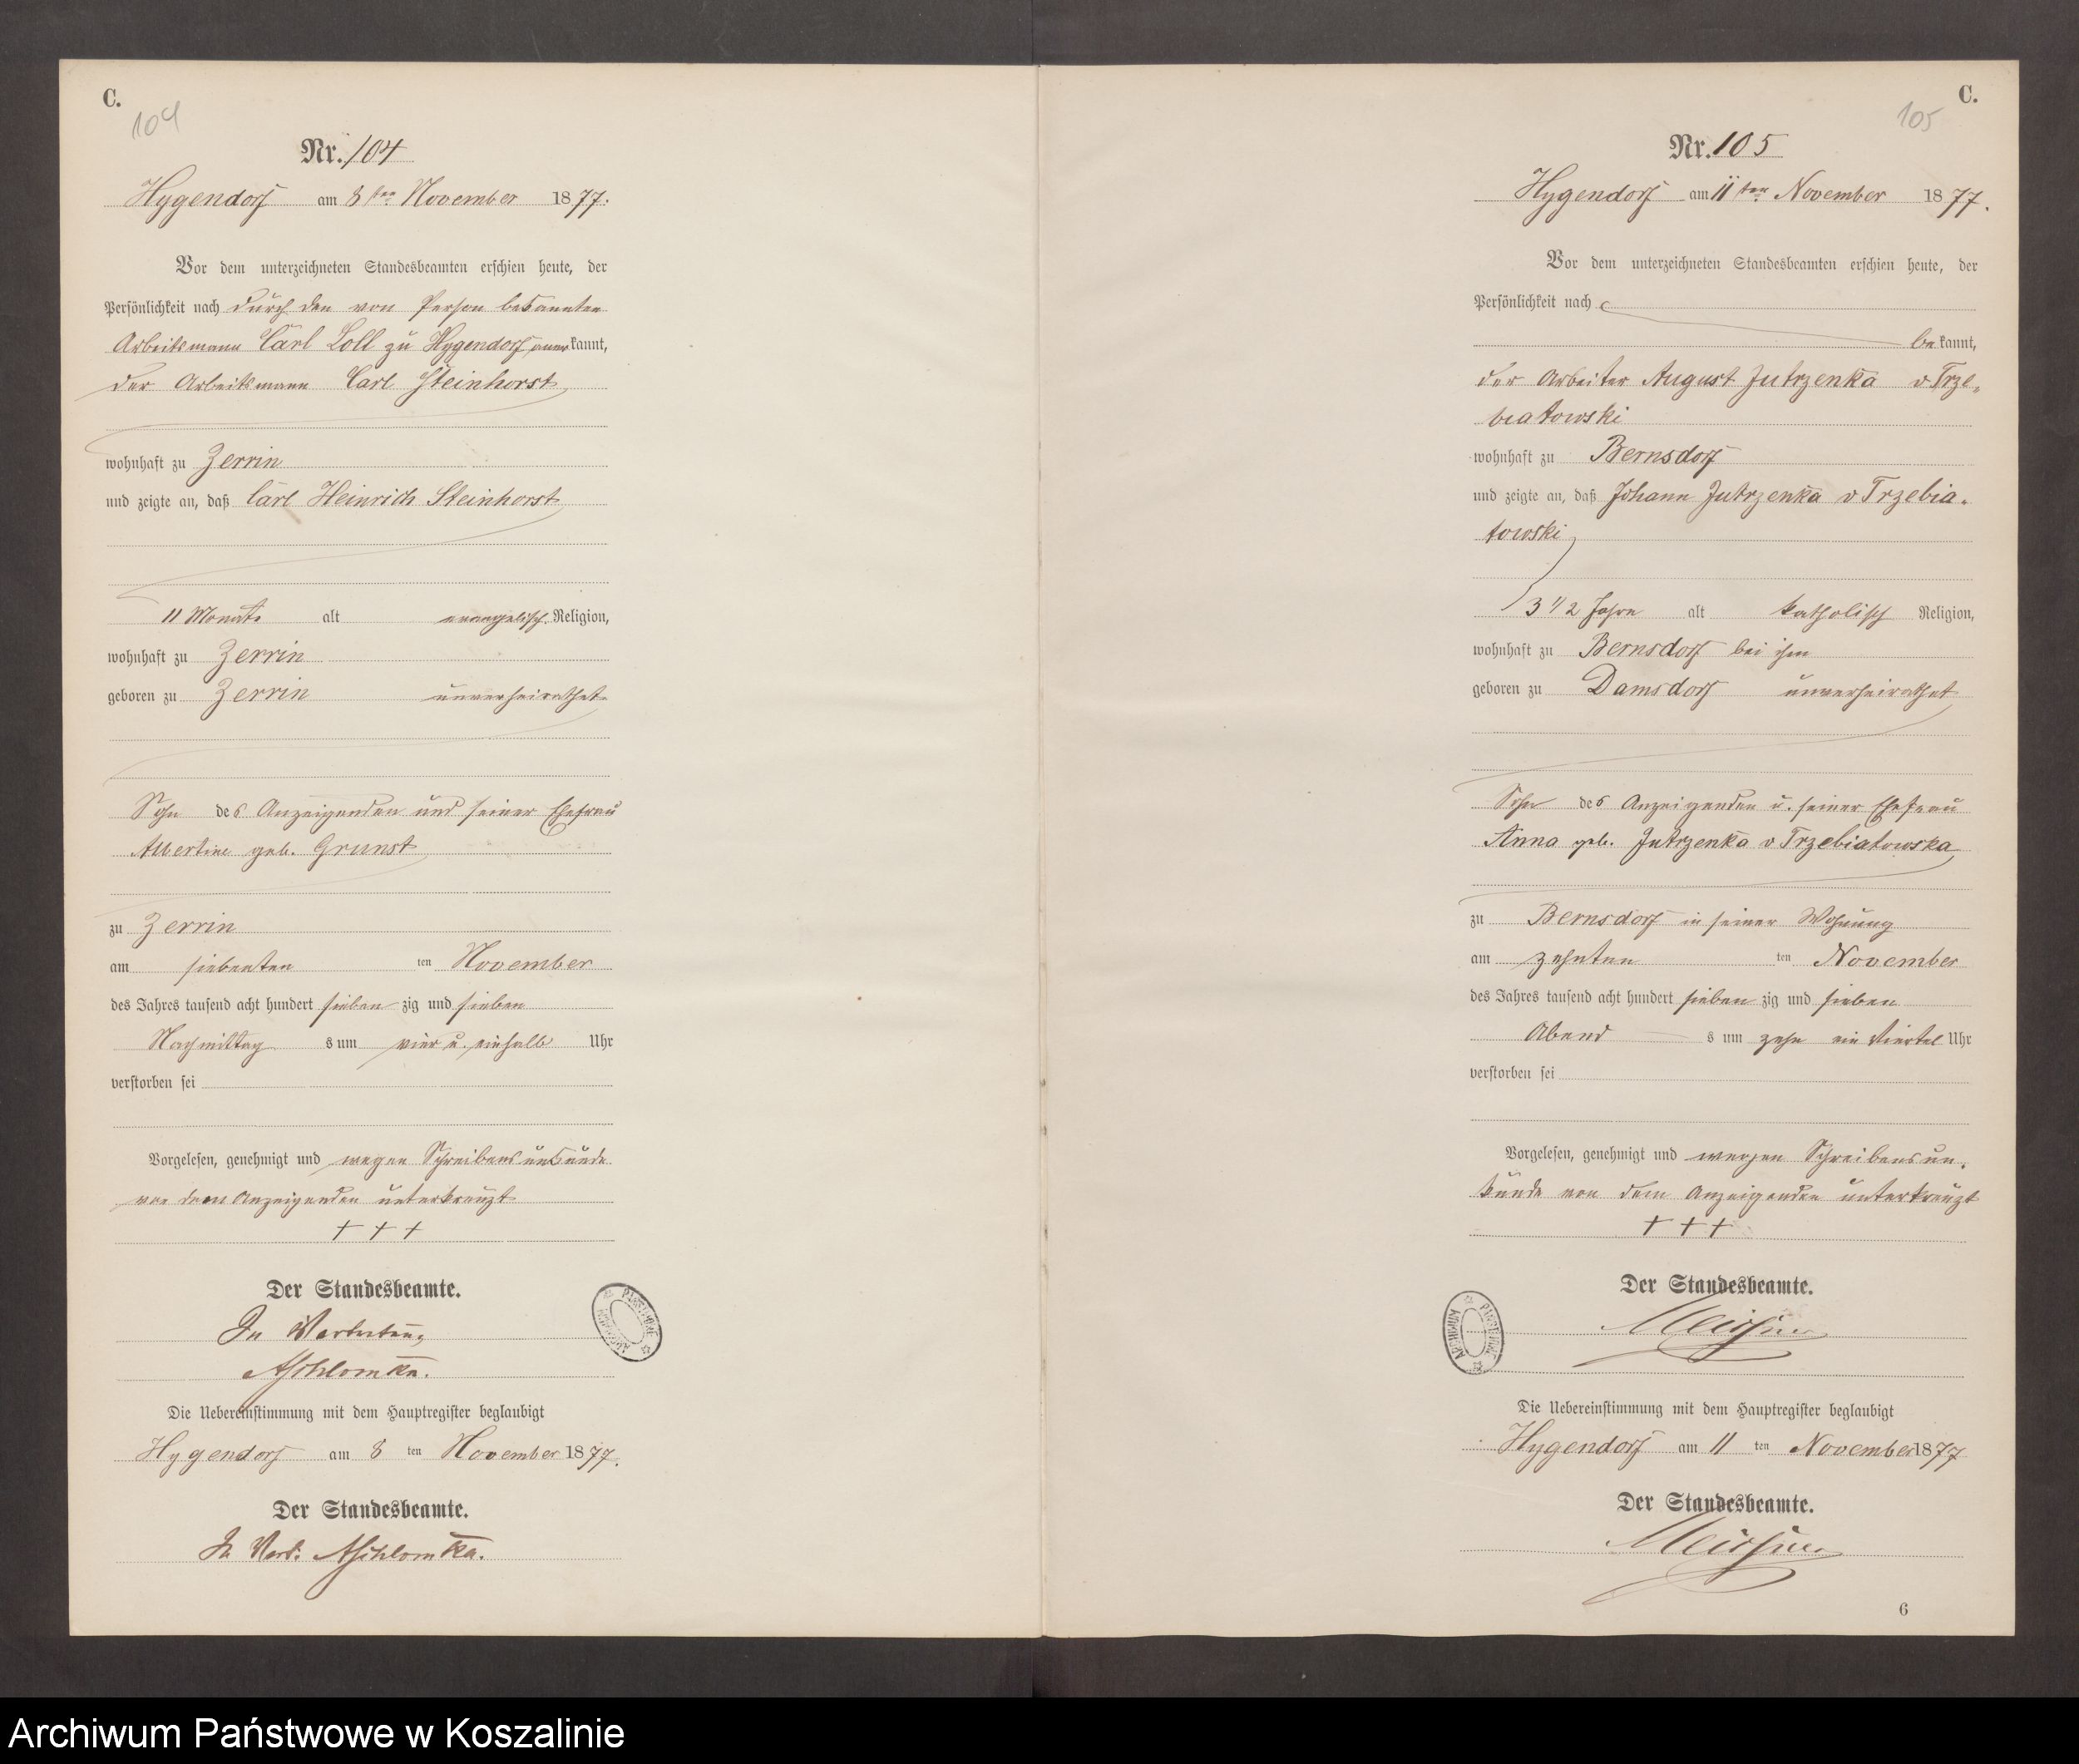 C.
104
Nr. 104
Hygendorf am 8ten November 1877.
Vor dem unterzeichneten Standesbeamten erschien heute, der
Persönlichkeit nach durch den von Person bekannten
Arbeitsmann Carl Loll zu Hygendorf anerkannt,
der Arbeitsmann Carl Steinhorst
wohnhaft zu Zerrin
und zeigte an, daß Carl Heinrich Steinhorst
11 Monate alt evangelisch Religion,
wohnhaft zu Zerrin
geboren zu Zerrin unverheirathet
Sohn des Anzeigenden und seiner Ehefrau
Albertine geb. Grunst
zu Zerrin
am siebenten ten November
des Jahres tausend acht hundert sieben zig und sieben
Nachmittag s um vier u. einhalb Uhr
verstorben sei
Vorgelesen, genehmigt und wegen Schreibensunkunde
von dem Anzeigenden unterkreuzt
+ + +
Der Standesbeamte.
In Vertretung
Die Uebereinstimmung mit dem Hauptregister beglaubigt
Hygendorf am 8 ten November 1877.
Der Standesbeamte.
In Vert:
ARCHIWUM PAŃSTWOWE
C.
105
Nr. 105
Hygendorf am 11ten November 1877.
Vor dem unterzeichneten Standesbeamten erschien heute, der
Persönlichkeit nach
bekannt,
der Arbeiter August Jutrzenka v Trze-
biatowski
wohnhaft zu Bernsdorf
und zeigte an, daß Johann Jutrzenka v Trzebia-
towski
3 1/2 Jahre alt katholisch Religion,
wohnhaft zu Bernsdorf bei ihm
geboren zu Damsdorf unverheirathet
Sohn des Anzeigenden u. seiner Ehefrau
Anna geb. Jutrzenka v Trzebiatowska
zu Bernsdorf in seiner Wohnung
am zehnten ten November
des Jahres tausend acht hundert sieben zig und sieben
Abend s um zehn ein Viertel Uhr
verstorben sei
Vorgelesen, genehmigt und wegen Schreibensun-
kunde von dem Anzeigenden unterkreuzt
+ + +
Der Standesbeamte.
ARCHIWUM PAŃSTWOWE
Die Uebereinstimmung mit dem Hauptregister beglaubigt
Hygendorf am 11 ten November 1877
Der Standesbeamte.
6
Archiwum Państwowe w Koszalinie